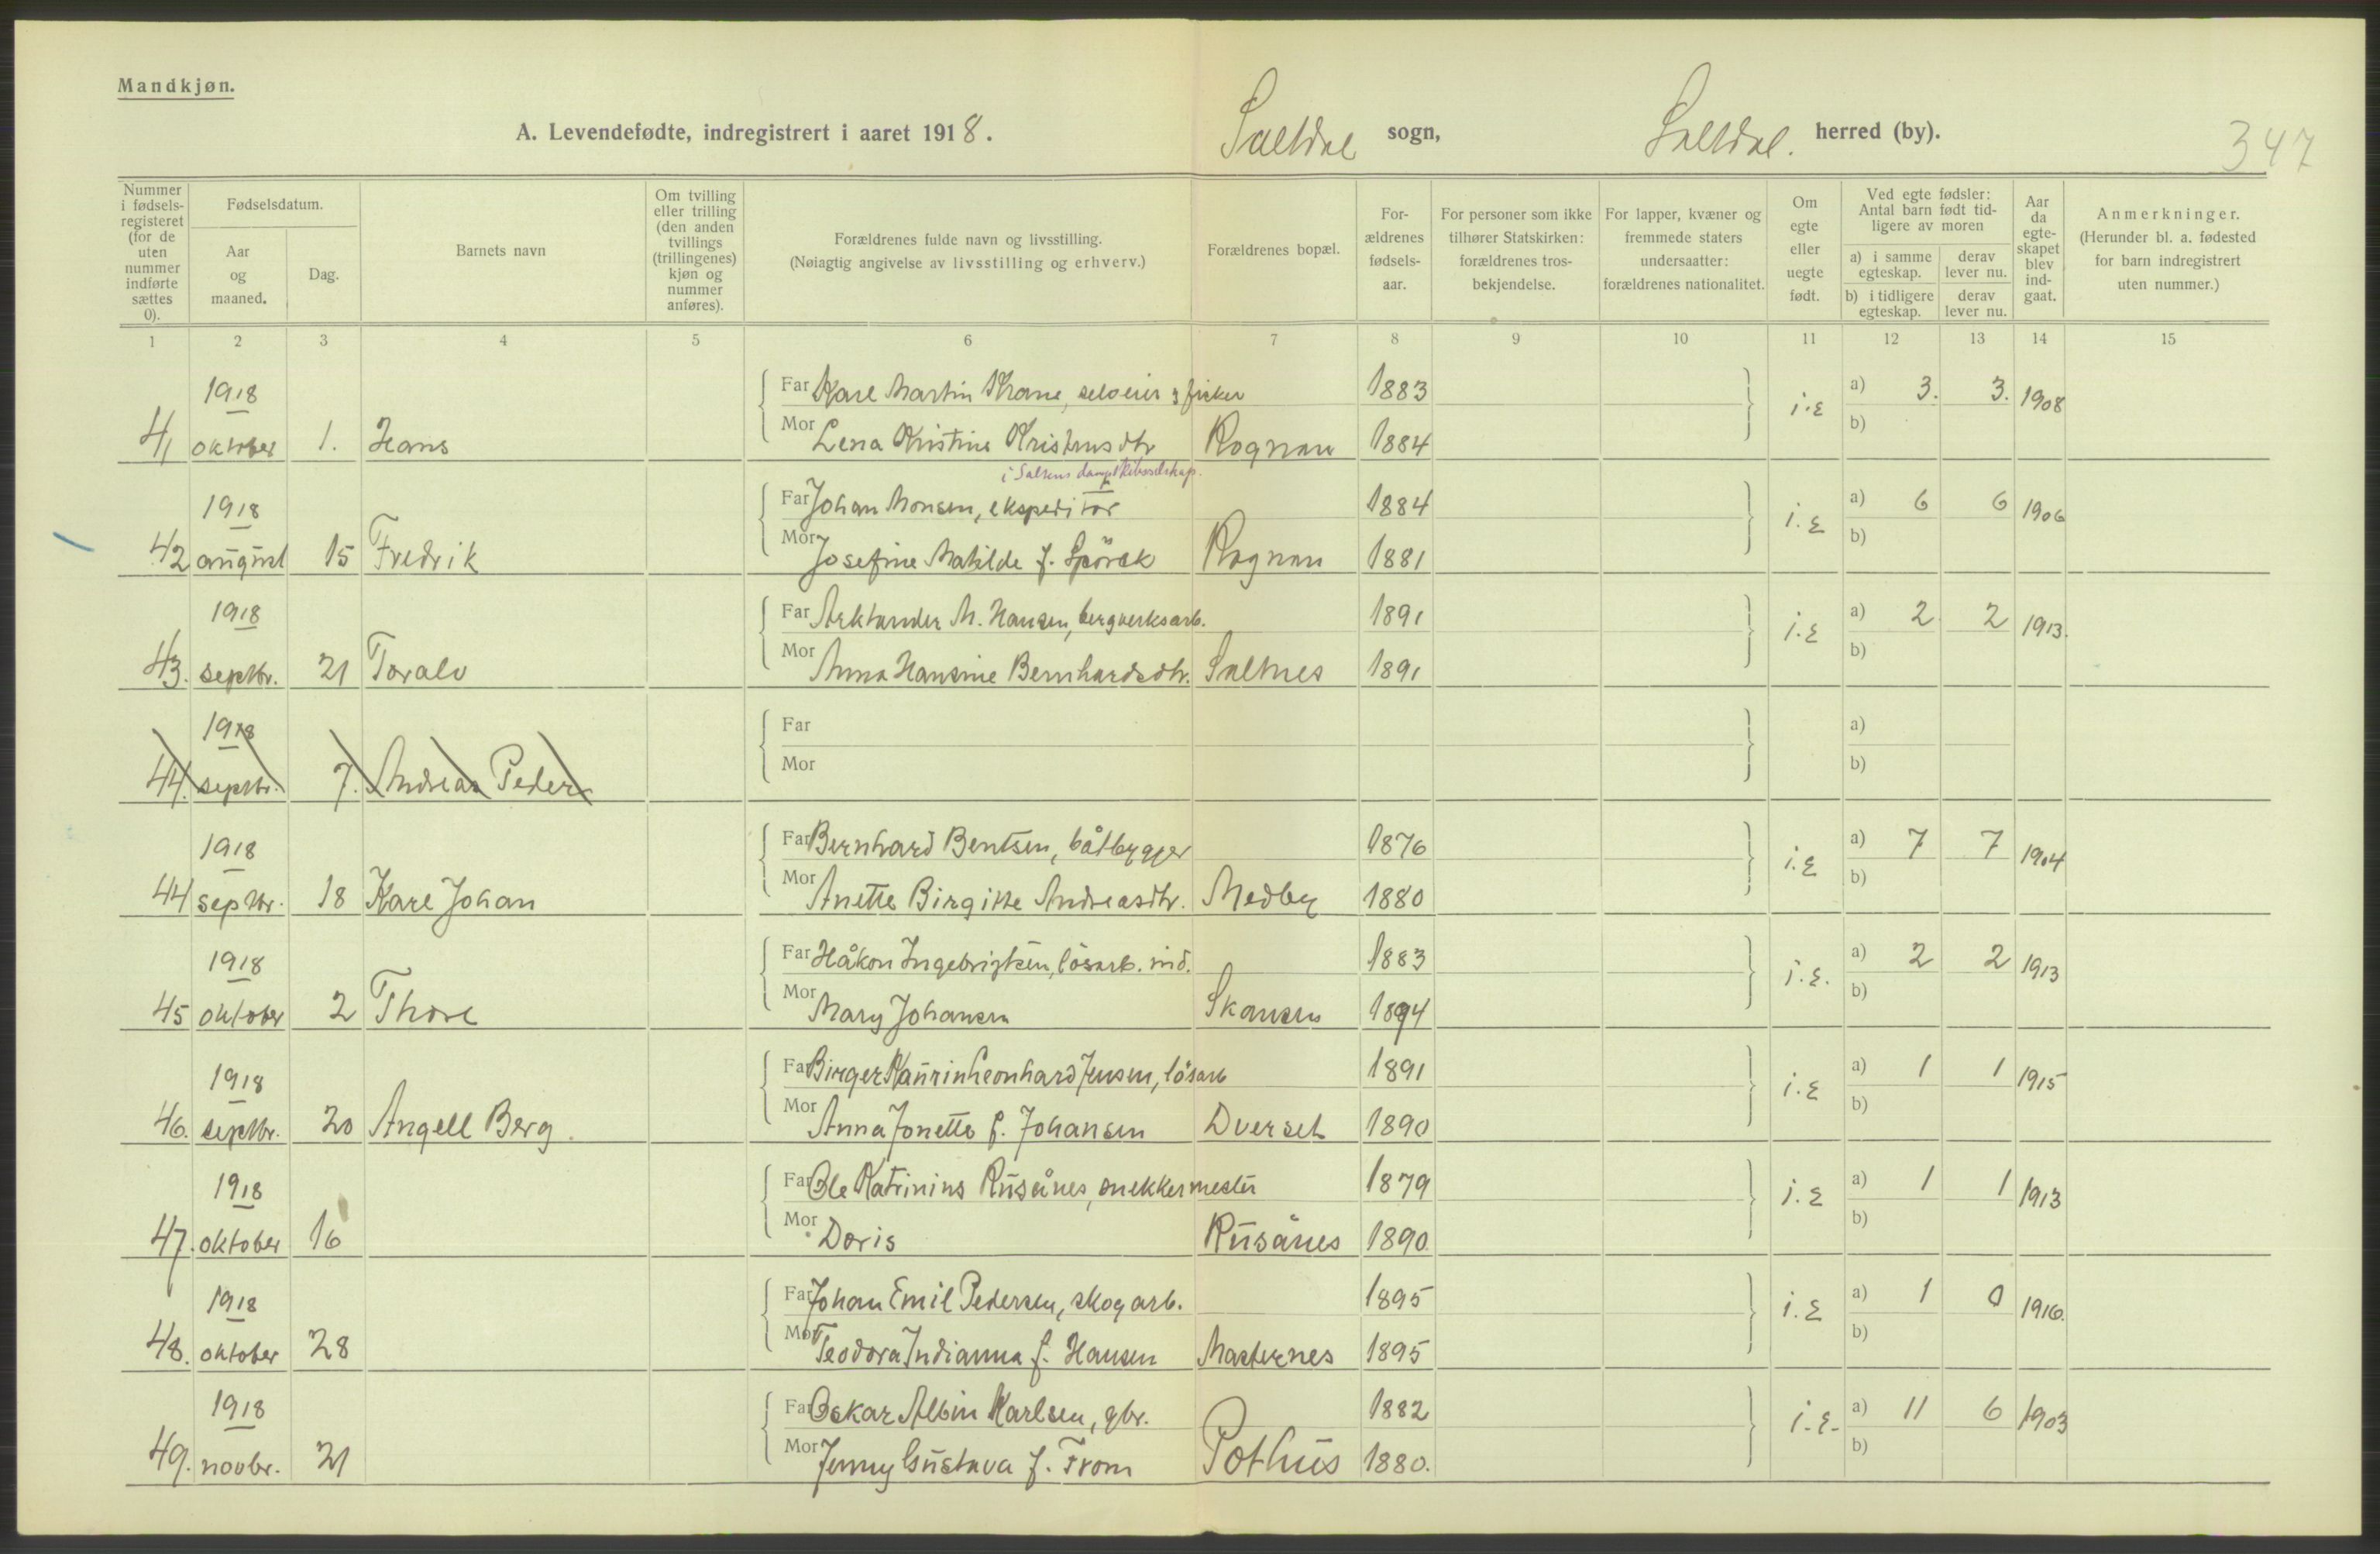 Mandkjøn.
A. Levendefødte, indregistrert i aaret 1918. Saltdal sogn, Saltdal. herred (by). 347
Nummer i fødselsregisteret (for de uten nummer indførte sættes 0).
Fødselsdatum.
Aar og maaned.
Dag.
Barnets navn
Om tvilling eller trilling (den anden tvillings (trillingenes) kjøn og nummer anføres).
Forældrenes fulde navn og livsstilling. (Nøiagtig angivelse av livsstilling og erhverv.)
Forældrenes bopæl.
Forældrenes fødselsaar.
For personer som ikke tilhører Statskirken: forældrenes trosbekjendelse.
For lapper, kvæner og fremmede staters undersaatter: forældrenes nationalitet.
Om egte eller uegte født.
Ved egte fødsler: Antal barn født tidligere av moren
a) i samme egteskap. derav lever nu.
b) i tidligere egteskap. derav lever nu.
Aar da egteskapet blev indgaat.
Anmerkninger. (Herunder bl. a. fødested for barn indregistrert uten nummer.)
1 2 3 4 5 6 7 8 9 10 11 12 13 14 15
1918 Far Karl Martin Krane, selveier & fisker 1883 i.E a) 3. 3. 1908
41 oktober 1. Hans Mor Lena Kristine Kristensdtr Rognan 1884 b)
i Saltens dampskibsselskap.
1918 Far Johan Monsen, ekspeditør 1884 i.E a) 6 6 1906
42 august 15 Fredrik Mor Josefine Matilde f. Spörck Rognan 1881 b)
1918 Far Arktander M. Hansen, bergverksarb. 1891 i.E a) 2 2 1913.
43. septbr. 21 Toralv Mor Anna Hansine Bernhardsdtr. Saltnes 1891 b)
1918 Far a)
44. septbr. 7. Andreas Peder Mor b)
1918 Far Bernhard Bentsen, båtbygger 1876 i.E a) 7 7 1904
44 septbr. 18 Karl Johan Mor Anette Birgitte Andreasdtr. Medby 1880 b)
1918 Far Håkon Ingebrigtsen, lösarb. ind. 1883 i.E. a) 2 2 1913
45 oktober 2 Thore Mor Mary Johansen Skansen 1894 b)
1918 Far Birger Kaurin Leonhard Jensen, lösarb 1891 i.E a) 1 1 1915
46. septbr. 20 Angell Berg. Mor Anna Jonette f. Johansen Dverset 1890 b)
1918 Far Ole Katrinius Rusånes, snekkermester 1879 i.E a) 1 1 1913
47. oktober 16 Mor Doris Rusånes 1890 b)
1918 Far Johan Emil Pedersen, skogarb. 1895 i.E a) 1 0 1916.
48. oktober 28 Mor Teodora Indianna f. Hansen Masternes 1895 b)
1918 Far Oskar Albin Karlsen, gbr. 1882 i.E. a) 11 6 1903
49. novbr. 21 Mor Jenny Gustava f. From Pothus 1880. b)